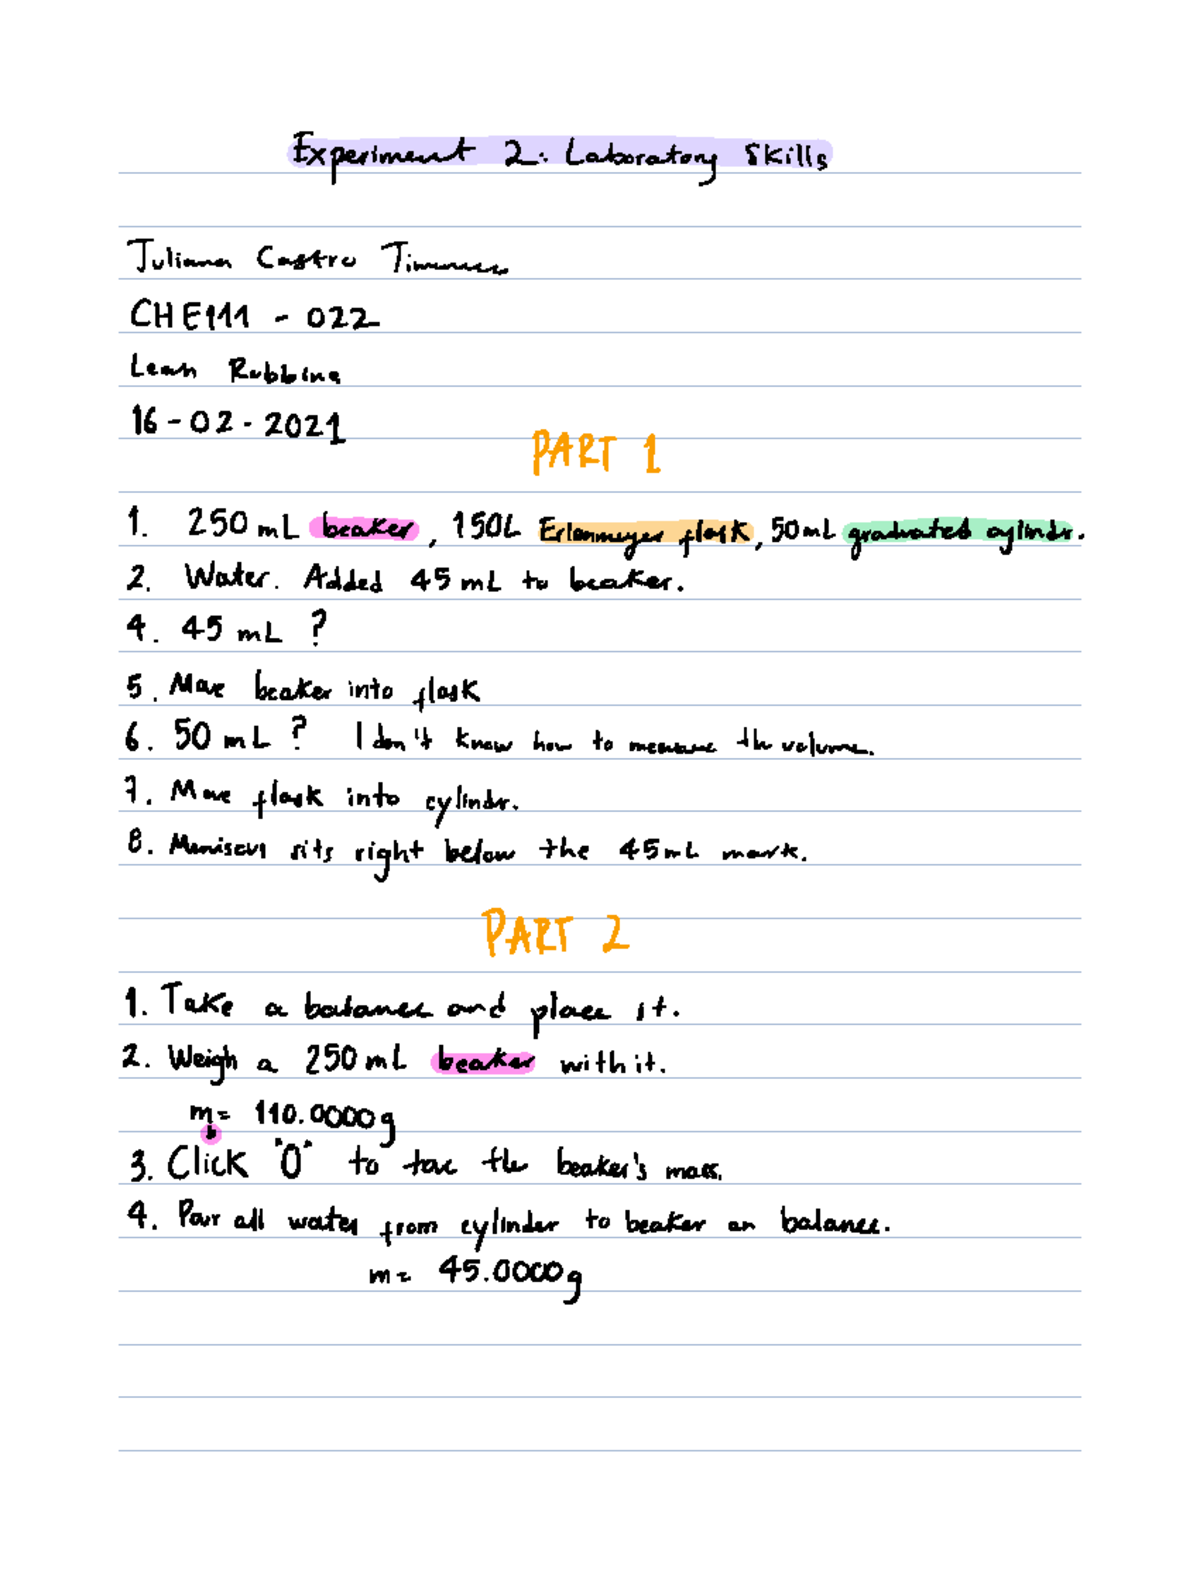 Experiment 2: Laboratory Skills
Juliana Castro
CHE111 - 022
Leah Robbins
16-02-2021
PART 1
1. 250 mL beaker, 150L Erlenmeyer flask, 50mL graduated cylindr.
2. Water. Added 45 mL to beaker.
4. 45 mL ?
5. Move beaker into flask
6. 50 mL ? I don't know how to measure the volume.
7. Move flask into cylindr.
8. Meniscus sits right below the 45mL mark.
PART 2
1. Take a balance and place it.
2. Weigh a 250 mL beaker with it.
m= 110.0000g
b
3. Click "0" to tare the beaker's mass.
4. Pour all water from cylinder to beaker on balance.
m= 45.0000g